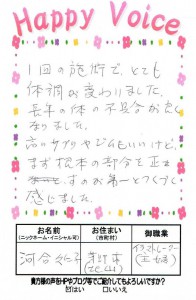 Happy Voice
1回の施術で、とても
体調が変わりました。
長年の体の不具合がなく
なりました。
高いサプリやジムもいいけど、
まず根本の部分を正
すのがお第一とつくづく
感じました。
お名前
(ニックネーム・イニシャル可)
お住まい
(市町村)
御職業
河合
イラストレーター
(主婦)
貴方様の声をHPやブログ等でご紹介してもよろしいですか?
☑はい □いいえ